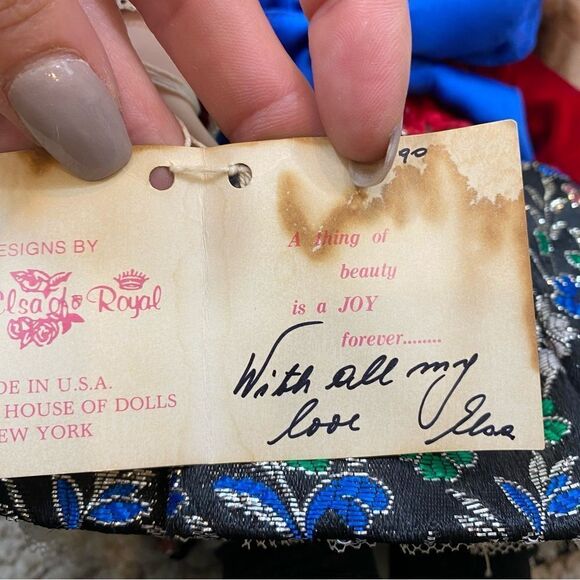 90
ESIGNS BY
Elsa of Royal
DE IN U.S.A.
HOUSE OF DOLLS
EW YORK
A thing of
beauty
is a JOY
forever........
With all my
love Elsa